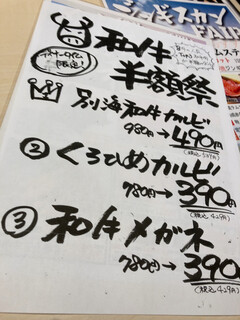 ジンギスカン
FAIR
和牛
半額祭
限定!
別海和牛カルビ
980円→490円
(税込539円)
② くろひめカルビ
780円→390円
(税込429円)
③ 和牛メガネ
780円→390
(税込429円)